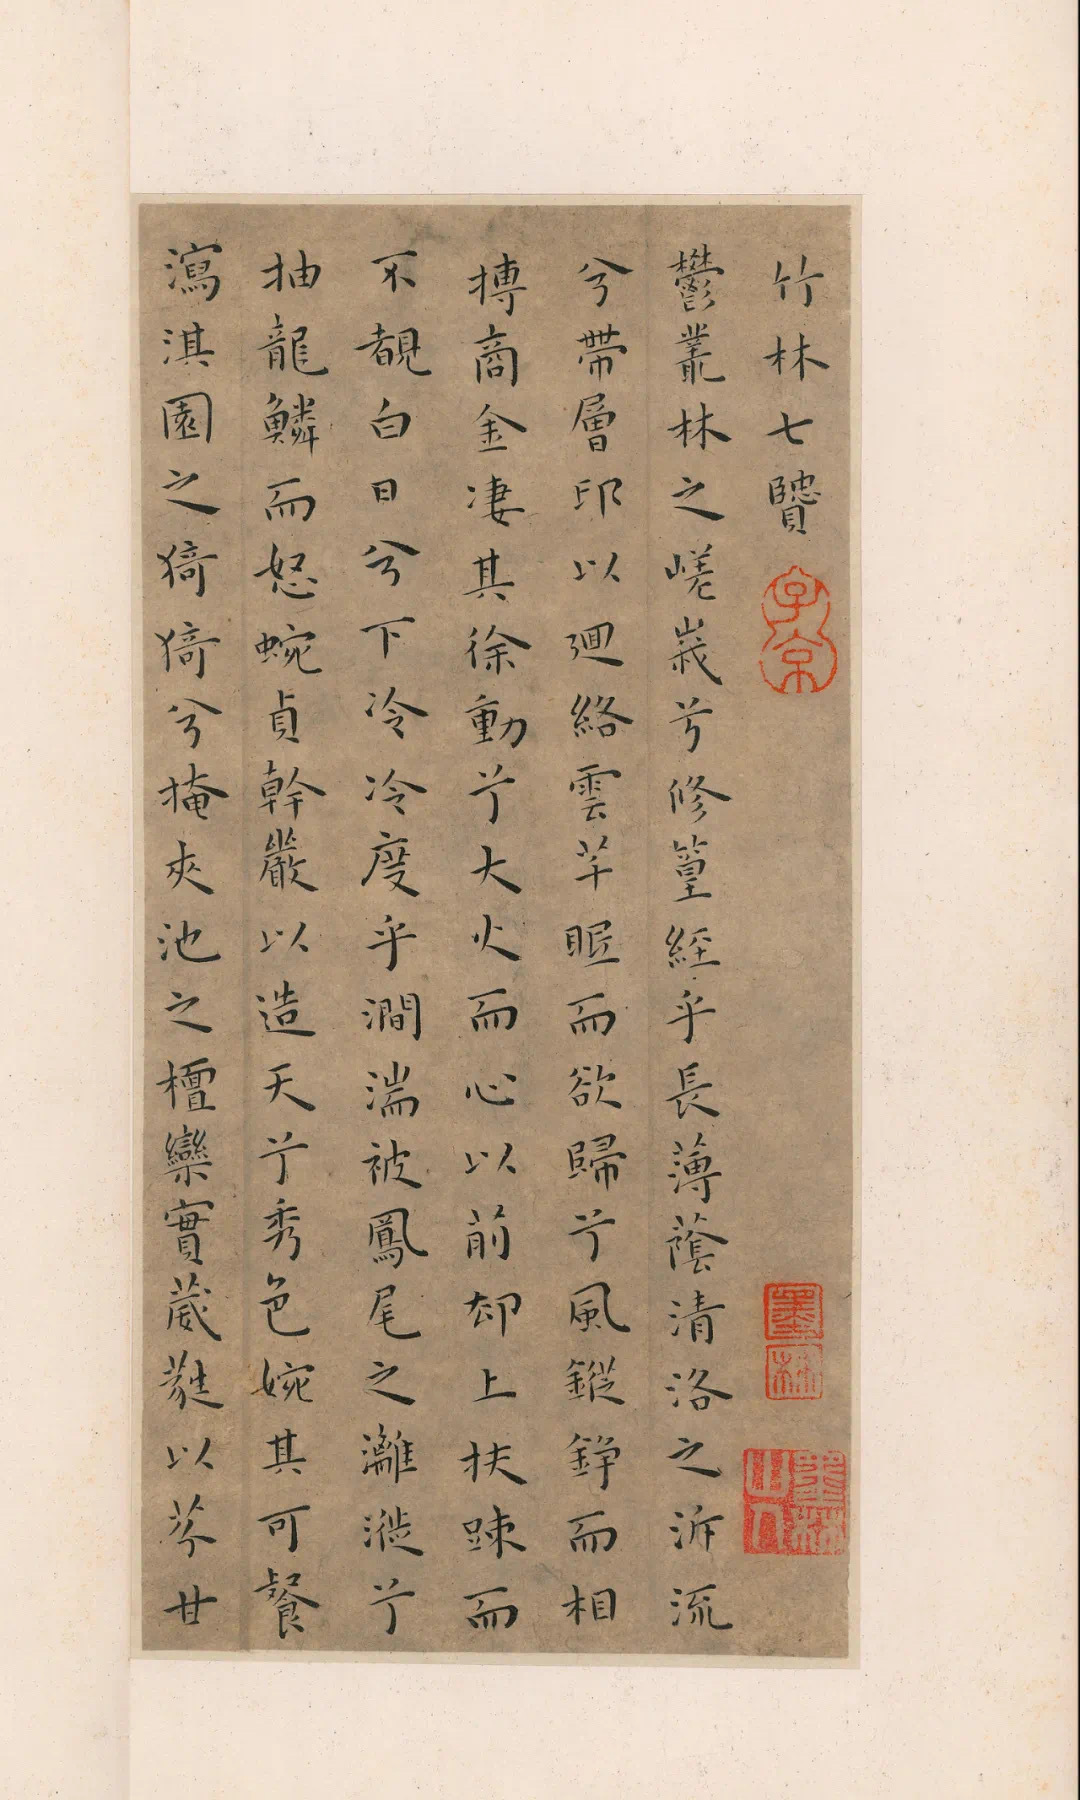 竹林七贒
子京
墨林
墨林山人
鬱叢林之嵯峩兮修篁經乎長薄蔭清洛之泝流
兮帶層印以廻絡雲芊眠而欲歸兮風鏦錚而相
摶商金淒其徐動兮大火而心以前却上扶踈而
不覩白日兮下冷冷度乎澗湍被鳳尾之灕漇兮
抽龍鱗而怒蜿貞幹嚴以造天兮秀色婉其可餐
瀉淇園之猗猗兮掩夾池之檀欒實葳蕤以芬甘